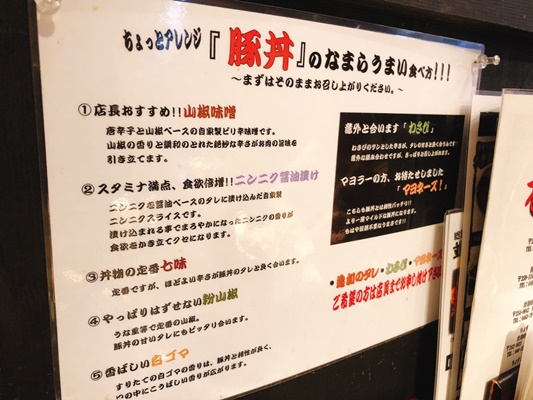 ちょっとアレンジ『豚丼』のなまらうまい食べ方!!!
～まずはそのままお召し上がりください。～
①店長おすすめ!!山椒味噌
唐辛子と山椒ベースの自家製ピリ辛味噌です。
山椒の香りと調和のとれた絶妙な辛さがお肉の旨味を
引き立てます。
②スタミナ満点、食欲倍増!!ニンニク醤油漬け
ニンニクを醤油ベースのタレに漬け込んだ自家製
ニンニクスライスです。
漬け込まれる事でまろやかになったニンニクの香りが
食欲をかき立てクセになります。
③丼物の定番七味
定番ですが、ほどよい辛さが豚丼のタレと良く合います。
④やっぱりはずせない粉山椒
うな重等で定番の山椒。
豚丼の甘いタレにもピッタリ合います。
⑤香ばしい白ゴマ
すりたての白ゴマの香りは、豚丼と相性が良く、
口の中にこうばしい香りが広がります。
意外と合います「わさび」
わさびのツンとした辛さが、タレの甘さと良く合います!
意外な組み合わせですが、さっぱりと召し上がれます。
マヨラーの方、お待たせしました
「マヨネーズ!」
こちらも豚丼とは相性バッチリ!!
より一層マイルドな豚丼になります。
・追加のタレ・わさび・マヨネーズ・
ご希望の方は店員までお申し付け下さい